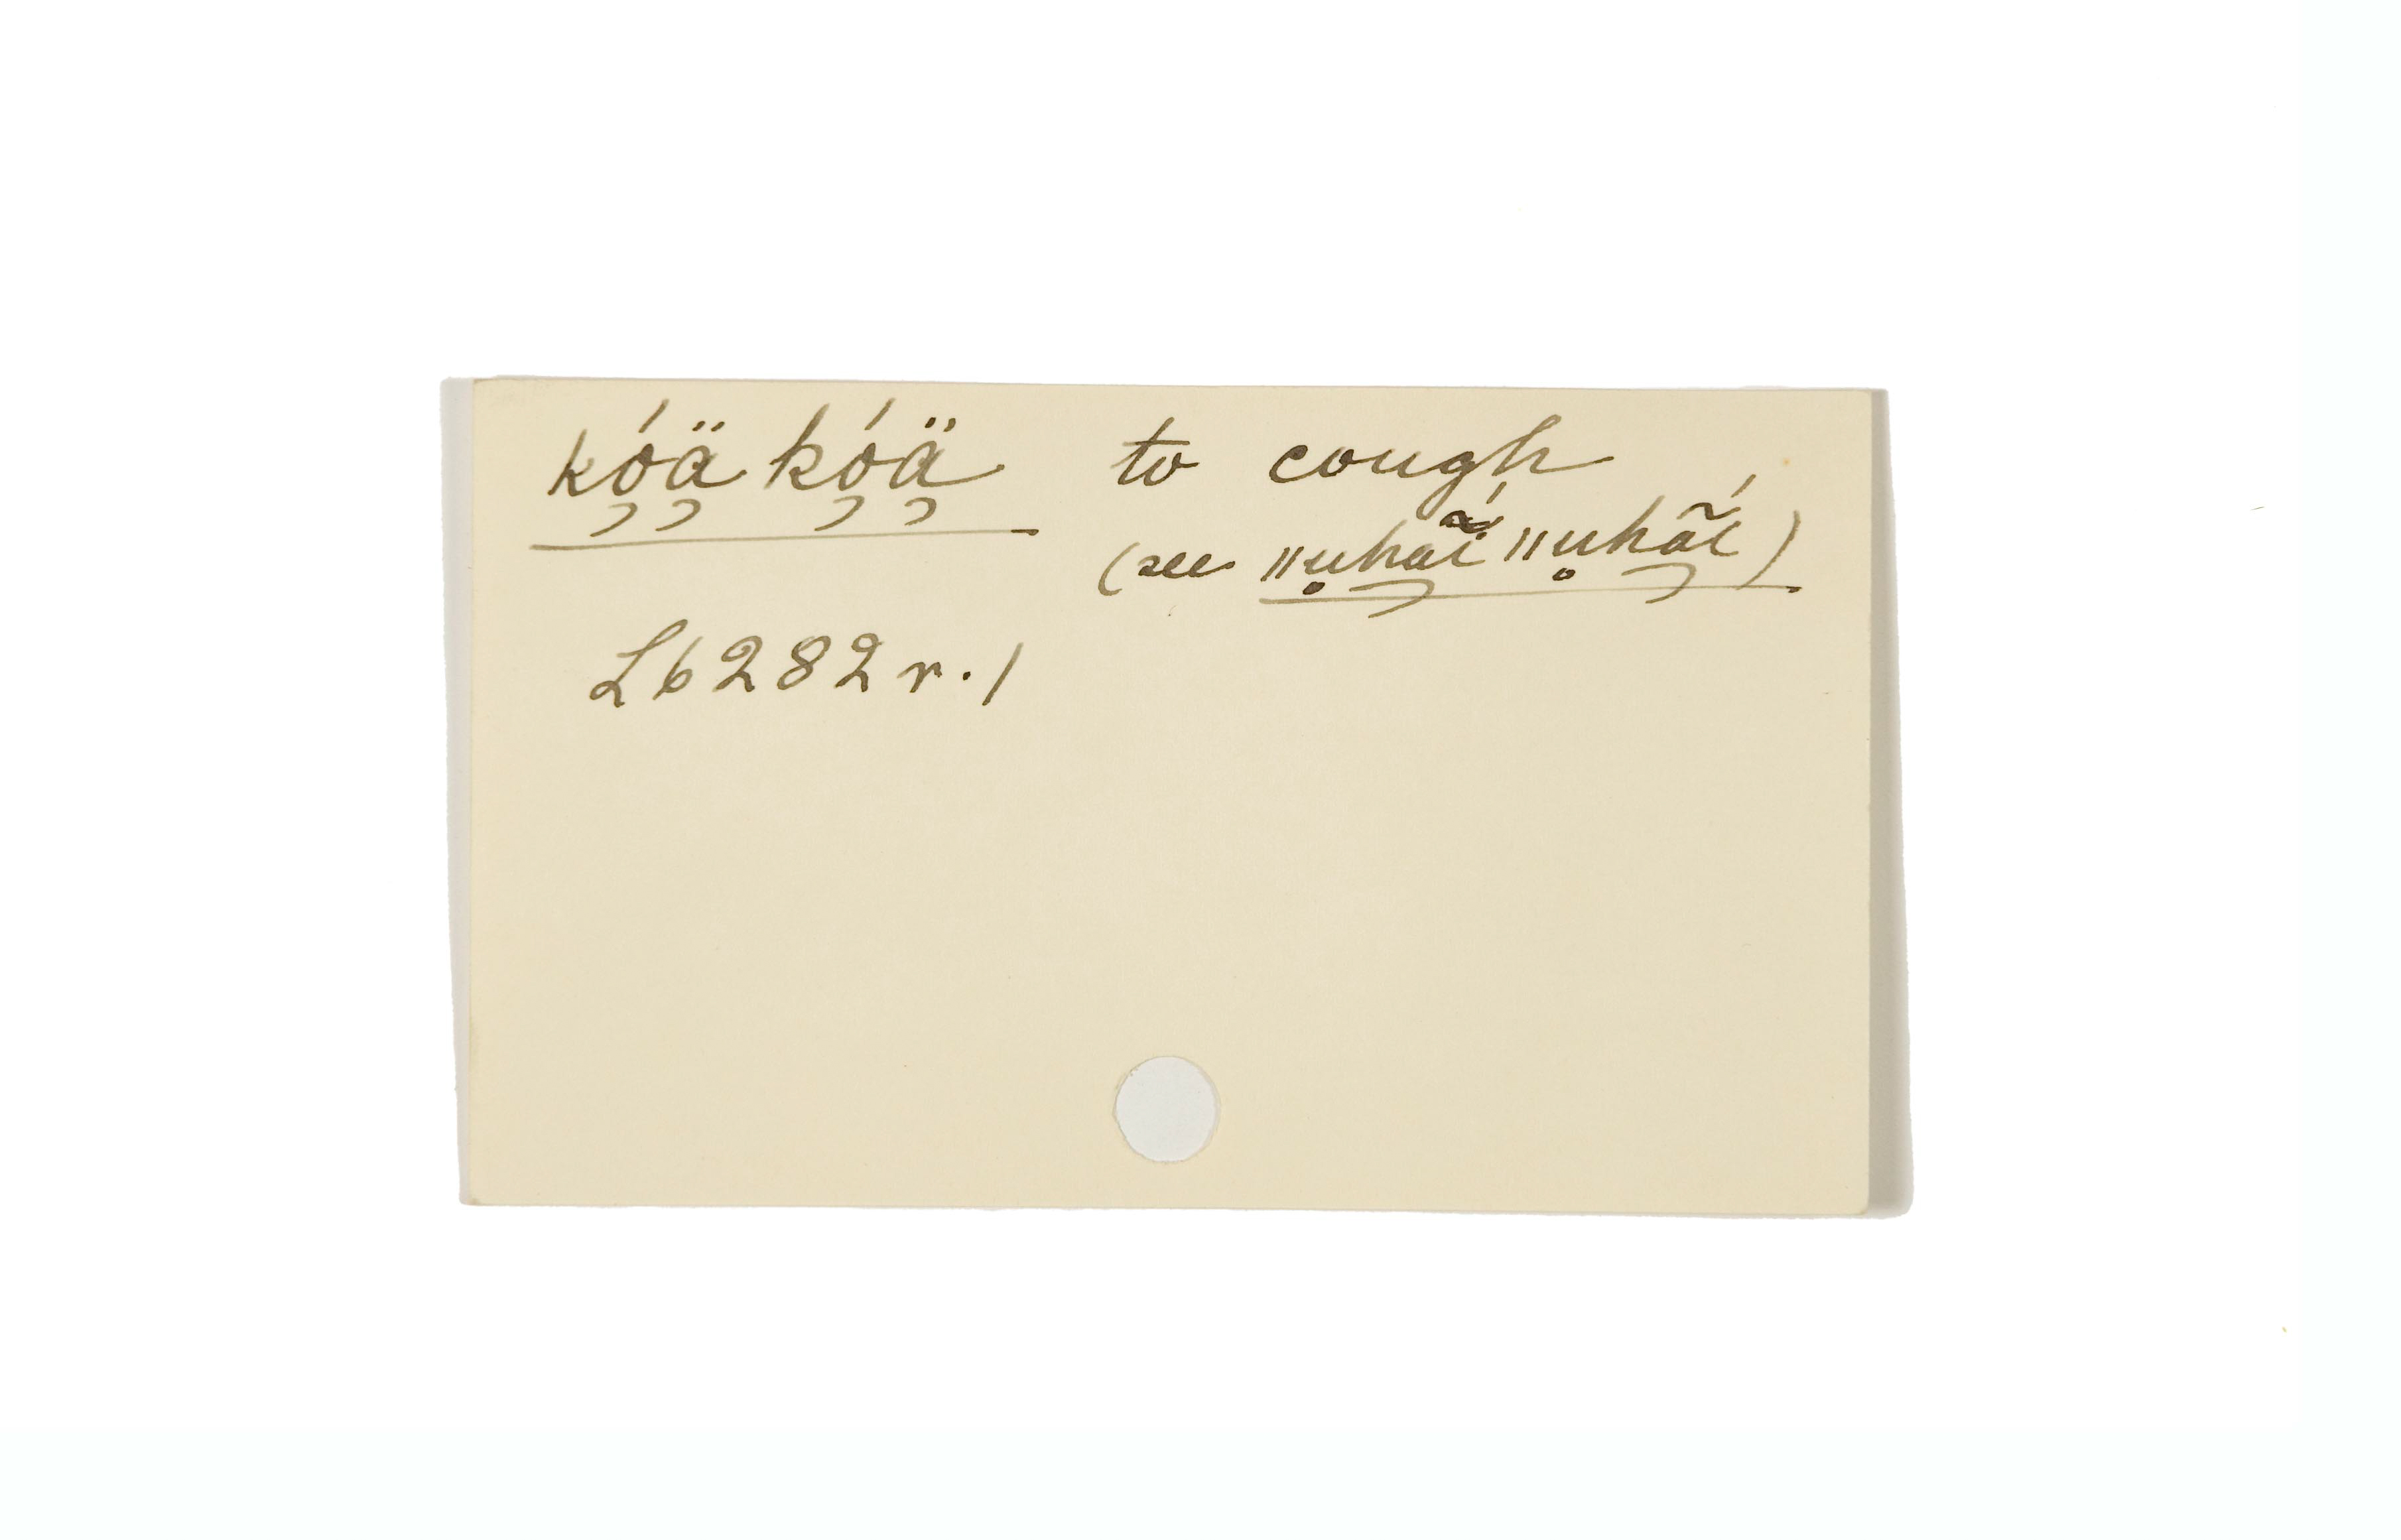 kó̦ä̦ kó̦ä̦ to cough
(see ǁu̥ha̦ĩ́ ǁu̥ha̦ĩ́)
L6282r.)